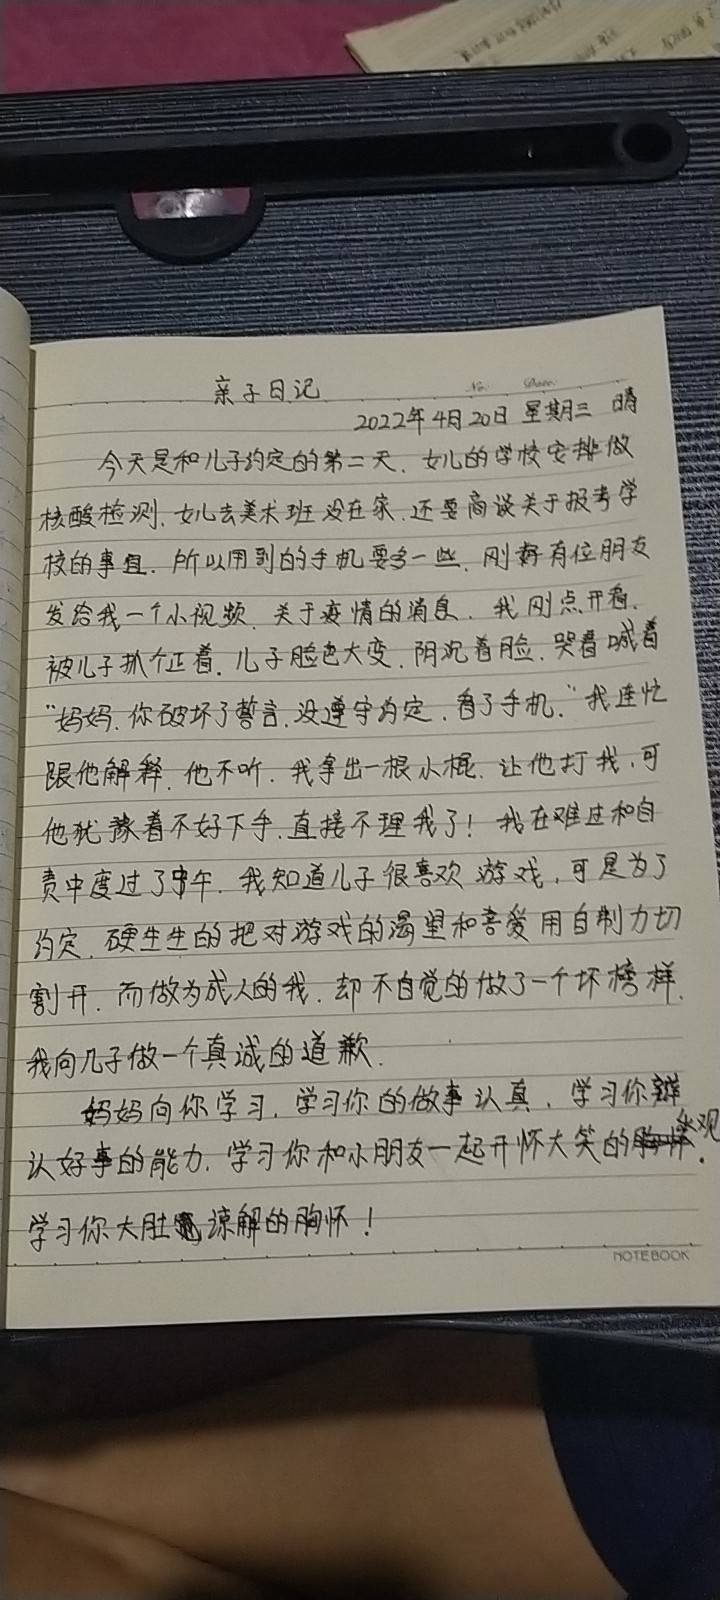 亲子日记
No. Date.
2022年4月20日 星期三 晴
今天是和儿子约定的第二天、女儿的学校安排做
核酸检测、女儿去美术班没在家、还要商谈关于报考学
校的事宜、所以用到的手机要多一些、刚好有位朋友
发给我一个小视频、关于疫情的消息、我刚点开看、
被儿子抓个正着、儿子脸色大变、阴沉着脸、哭着喊着
“妈妈、你破坏了誓言、没遵守约定、看了手机。”我连忙
跟他解释、他不听、我拿出一根小棍、让他打我、可
他犹豫着不好下手、直接不理我了！我在难过和自
责中度过了中午、我知道儿子很喜欢游戏、可是为了
约定、硬生生的把对游戏的渴望和喜爱用自制力切
割开、而做为成人的我、却不自觉的做了一个坏榜样、
我向儿子做一个真诚的道歉、
妈妈向你学习、学习你的做事认真、学习你辨
认好事的能力、学习你和小朋友一起开怀大笑的乐观、
学习你大肚谅解的胸怀！
NOTEBOOK